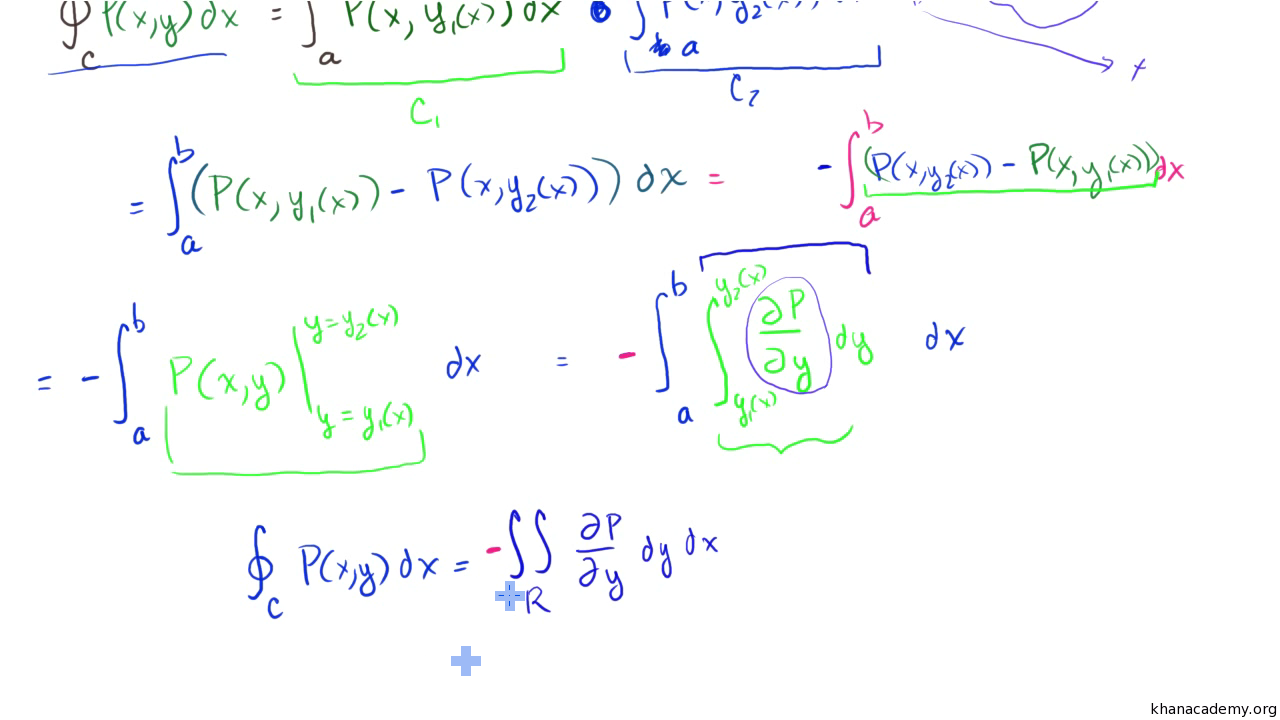 ∮_C P(x,y) dx = ∫_a P(x, y₁(x)) dx ∫_a
C₁ C₂ x
= ∫_a^b (P(x, y₁(x)) - P(x, y₂(x))) dx = - ∫_a^b (P(x, y₂(x)) - P(x, y₁(x))) dx
= - ∫_a^b P(x,y) |_{y = y₁(x)}^{y = y₂(x)} dx = - ∫_a^b ∫_{y₁(x)}^{y₂(x)} ∂P/∂y dy dx
∮_C P(x,y) dx = - ∬_R ∂P/∂y dy dx
khanacademy.org